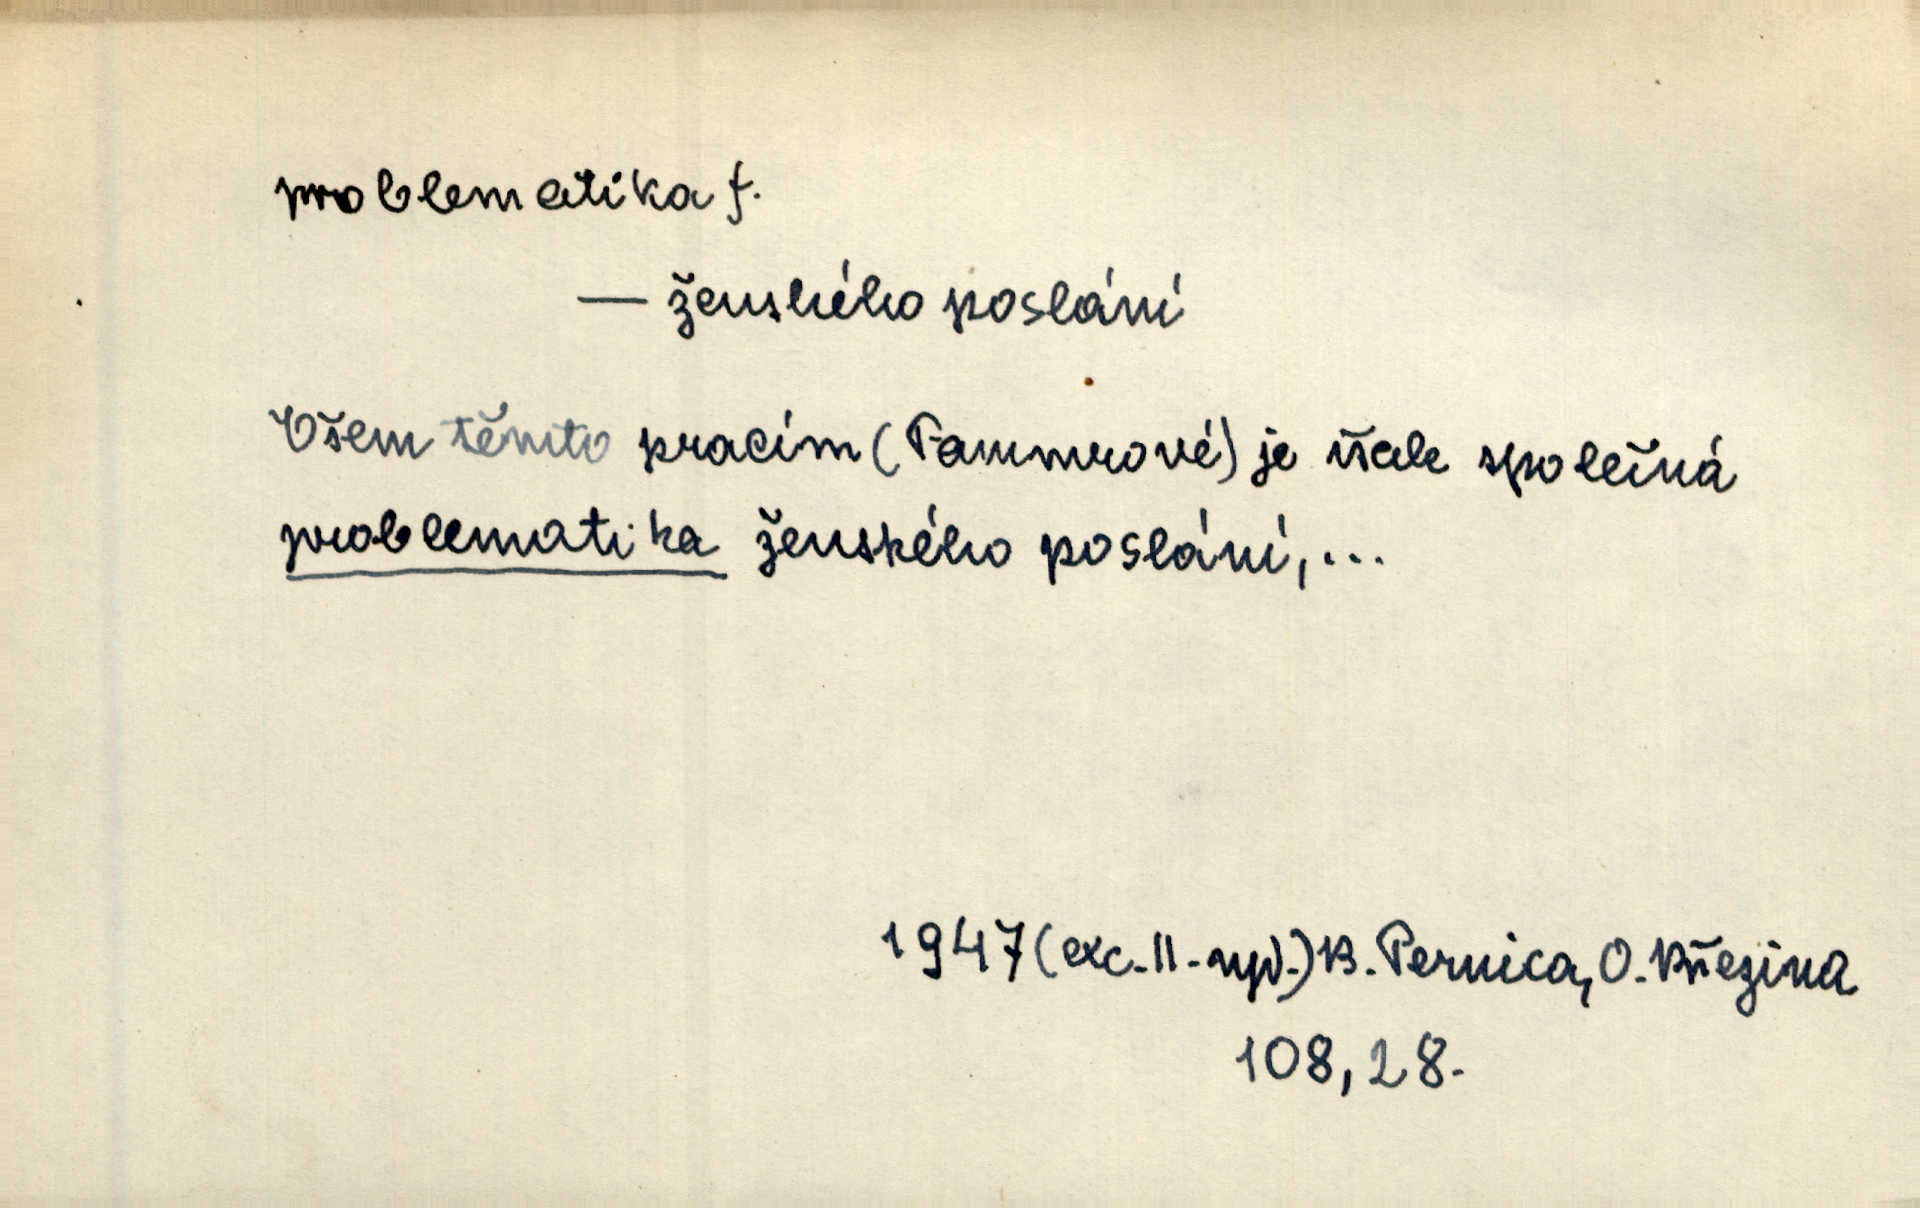 problematika f.
— ženského poslání
Všem těmto pracím (Pammrové) je však společná
problematika ženského poslání, ...
1947 (exc. II. vyd.) B. Pernica, O. Březina
108, 28.